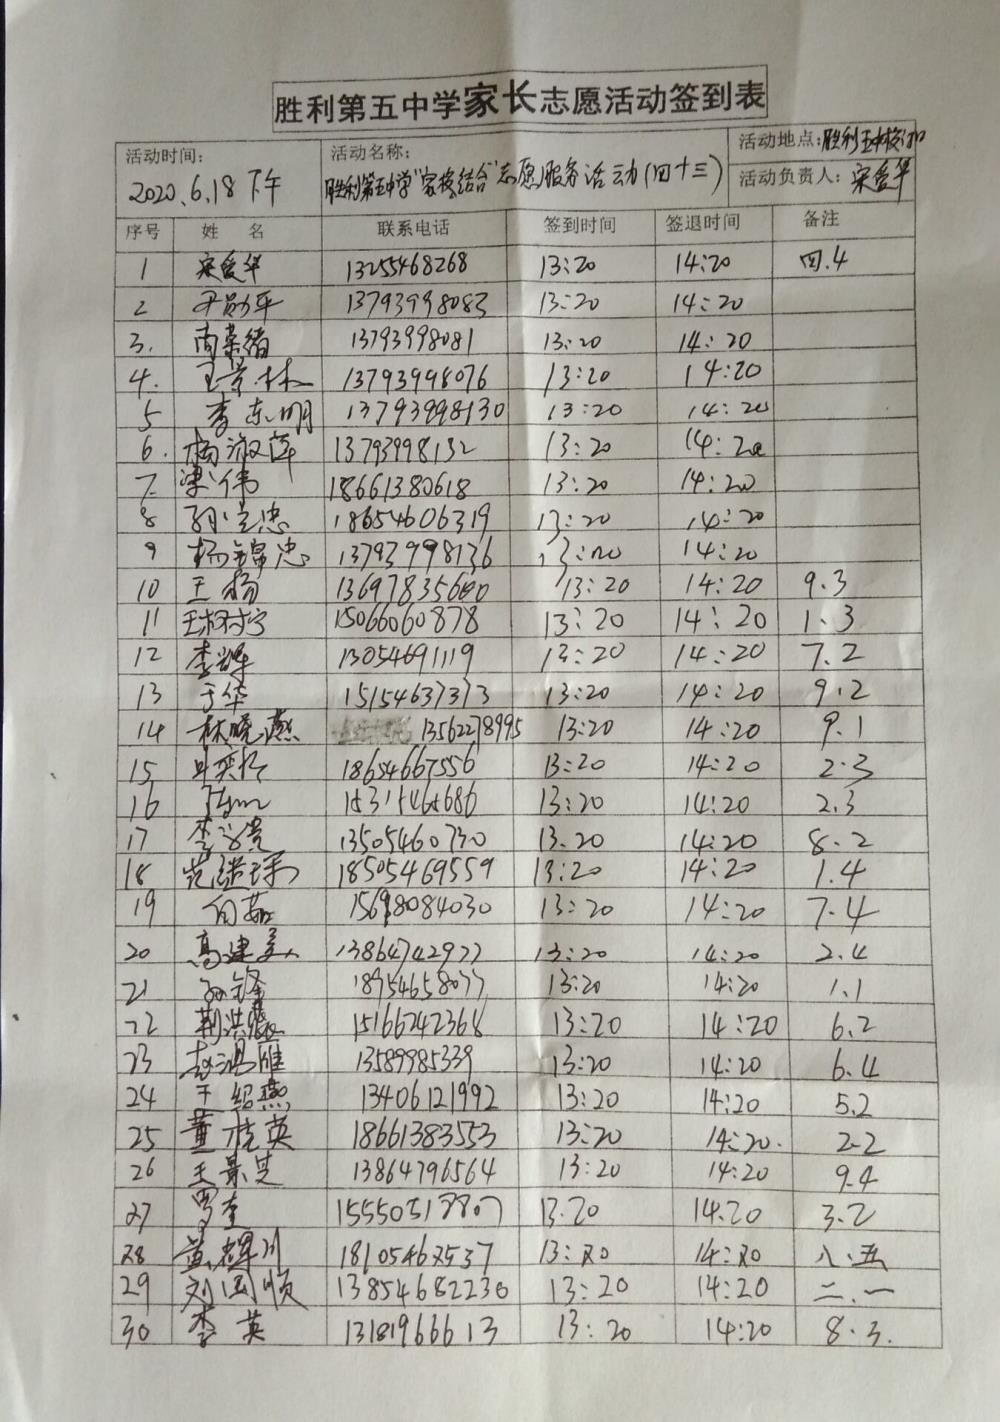 胜利第五中学家长志愿活动签到表
活动时间: 2020.6.18下午
活动名称: 胜利第五中学"家校结合"志愿服务活动(四十三)
活动地点: 胜利五中校门口
活动负责人: 宋爱华
序号 姓 名 联系电话 签到时间 签退时间 备注
1 宋爱华 13255468268 13:20 14:20 四.4
2 尹勋平 13793998083 13:20 14:20
3. 尚荣绪 13793998081 13:20 14:20
4. 王景林 13793998076 13:20 14:20
5 李东明 13793998130 13:20 14:20
6. 杨淑萍 13793998132 13:20 14:20
7. 梁伟 18661380618 13:20 14:20
8 孙立忠 18654606319 13:20 14:20
9 杨锦忠 13793998136 13:20 14:20
10 王杨 13697835600 13:20 14:20 9.3
11 15066060878 13:20 14:20 1.3
12 李辉 13054691119 13:20 14:20 7.2
13 于华 15154637373 13:20 14:20 9.2
14 林晓燕 13562278995 13:20 14:20 9.1
15 18654667556 13:20 14:20 2.3
16 15315464686 13:20 14:20 2.3
17 李 13505460730 13.20 14:20 8.2
18 范继 18505469559 13:20 14:20 1.4
19 向茹 15698084030 13:20 14:20 7.4
20 高建美 13864742977 13:20 14:20 2.4
21 孙锋 18954658077 13:20 14:20 1.1
22 荆洪 15166242368 13:20 14:20 6.2
23 赵鸿雁 13589985339 13:20 14:20 6.4
24 于绍燕 13406121992 13:20 14:20 5.2
25 董桂英 18661383553 13:20 14:20. 2.2
26 王景芝 13864796564 13:20 14:20 9.4
27 罗奎 13.20 14.20 3.2
28 黄辉川 18105462537 13:20 14:20 八.五
29 刘国顺 13854682230 13:20 14:20 二.一
30 李英 13181966613 13:20 14:20 8.3.